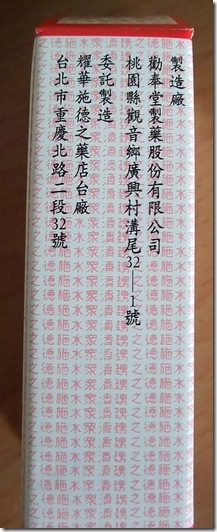 製造廠
勸奉堂製藥股份有限公司
桃園縣觀音鄉廣興村溝尾32—1號
委託製造
耀華施德之藥店台廠
台北市重慶北路二段32號